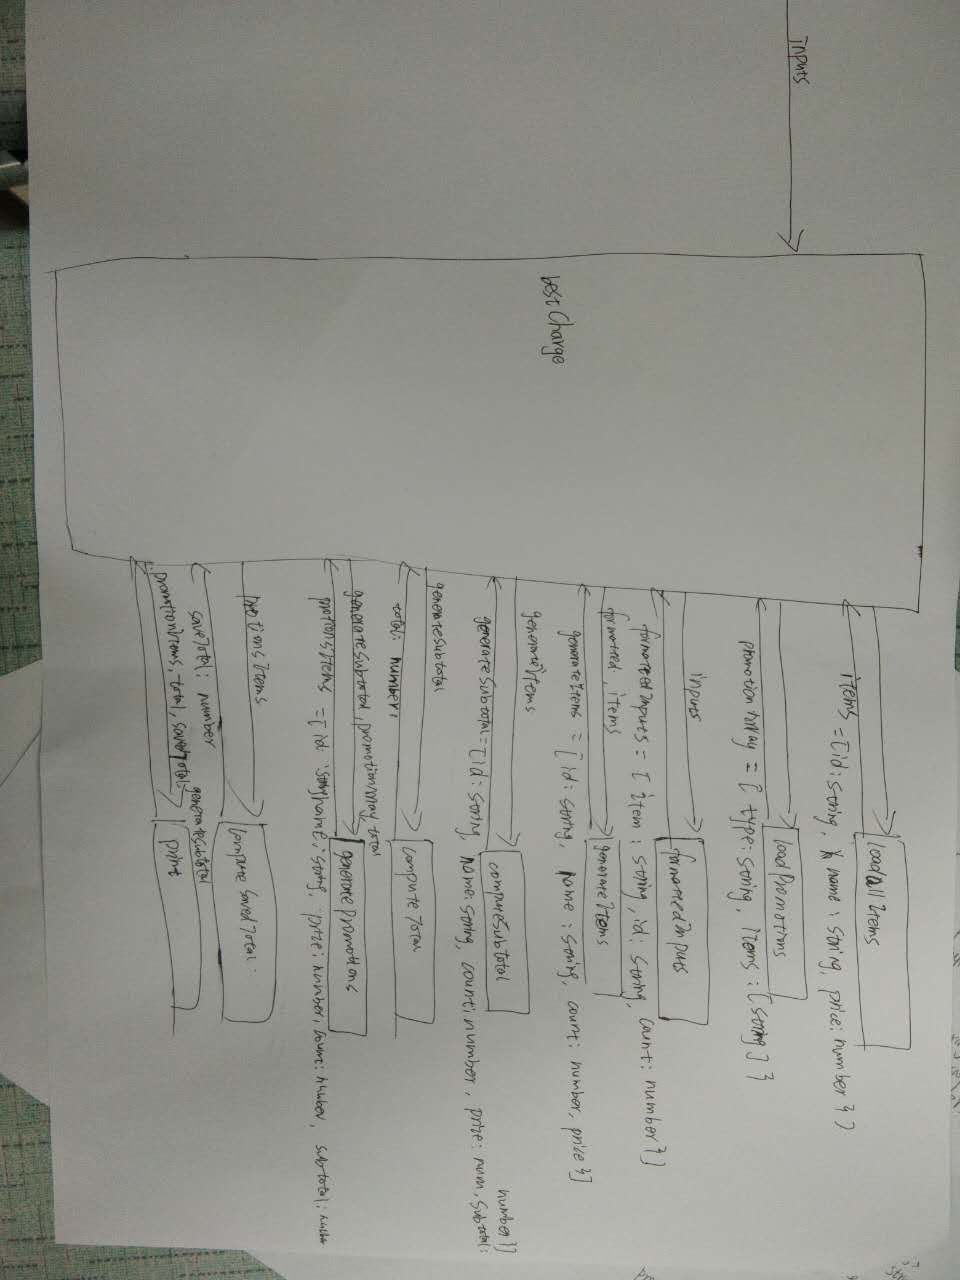 inputs
best Charge
loadAllItems
items = [{id: string, name: string, price: number}]
loadPromotions
promotionArray = [{ type: string, items: [string] }
inputs
formatedInputs
formatedInputs = [ item : string, id : string, count : number}]
formatted, items
generateItems
generateItems = [ id : string, name : string, count : number, price }]
generateItems
computeSubtotal
generateSubtotal = [ id : string, name : string, count : number, price : num, Subtotal :
number}]
generateSubtotal
computeTotal
total : number;
generateSubtotal, promotionArray, total
generatePromotions
= [ id : string, name : string, price : number, count : number, subtotal :
Items
compute Saved Total
saveTotal : number
promotionItems, total, savedTotal,
generateSubtotal
print